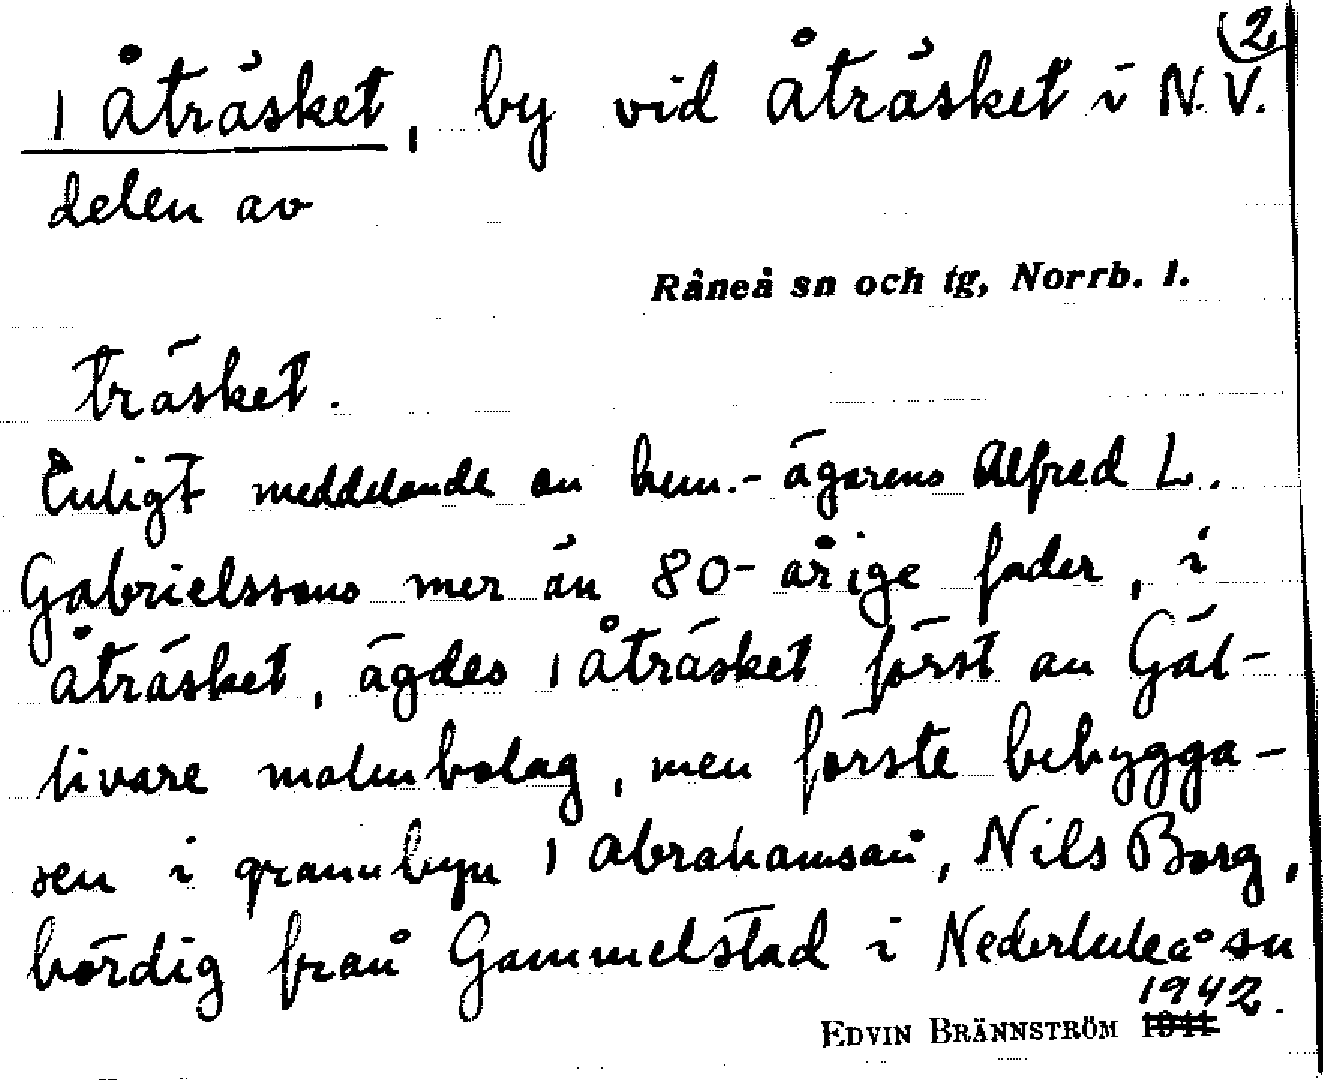 2
1 Åträsket, by vid Åträsket i N.V.
delen av
Råneå sn och tg, Norrb. l.
träsket.
Enligt meddelande av hem.-ägarens Alfred L.
Gabrielssons mer än 80-årige fader, i
Åträsket, ägdes 1 Åträsket först av Gäl-
livare malmbolag, men förste bebygga-
ren i grannbyn 1 Abrahamsån, Nils Borg,
bördig från Gammelstad i Nederluleå sn
1942.
EDVIN BRÄNNSTRÖM 1941